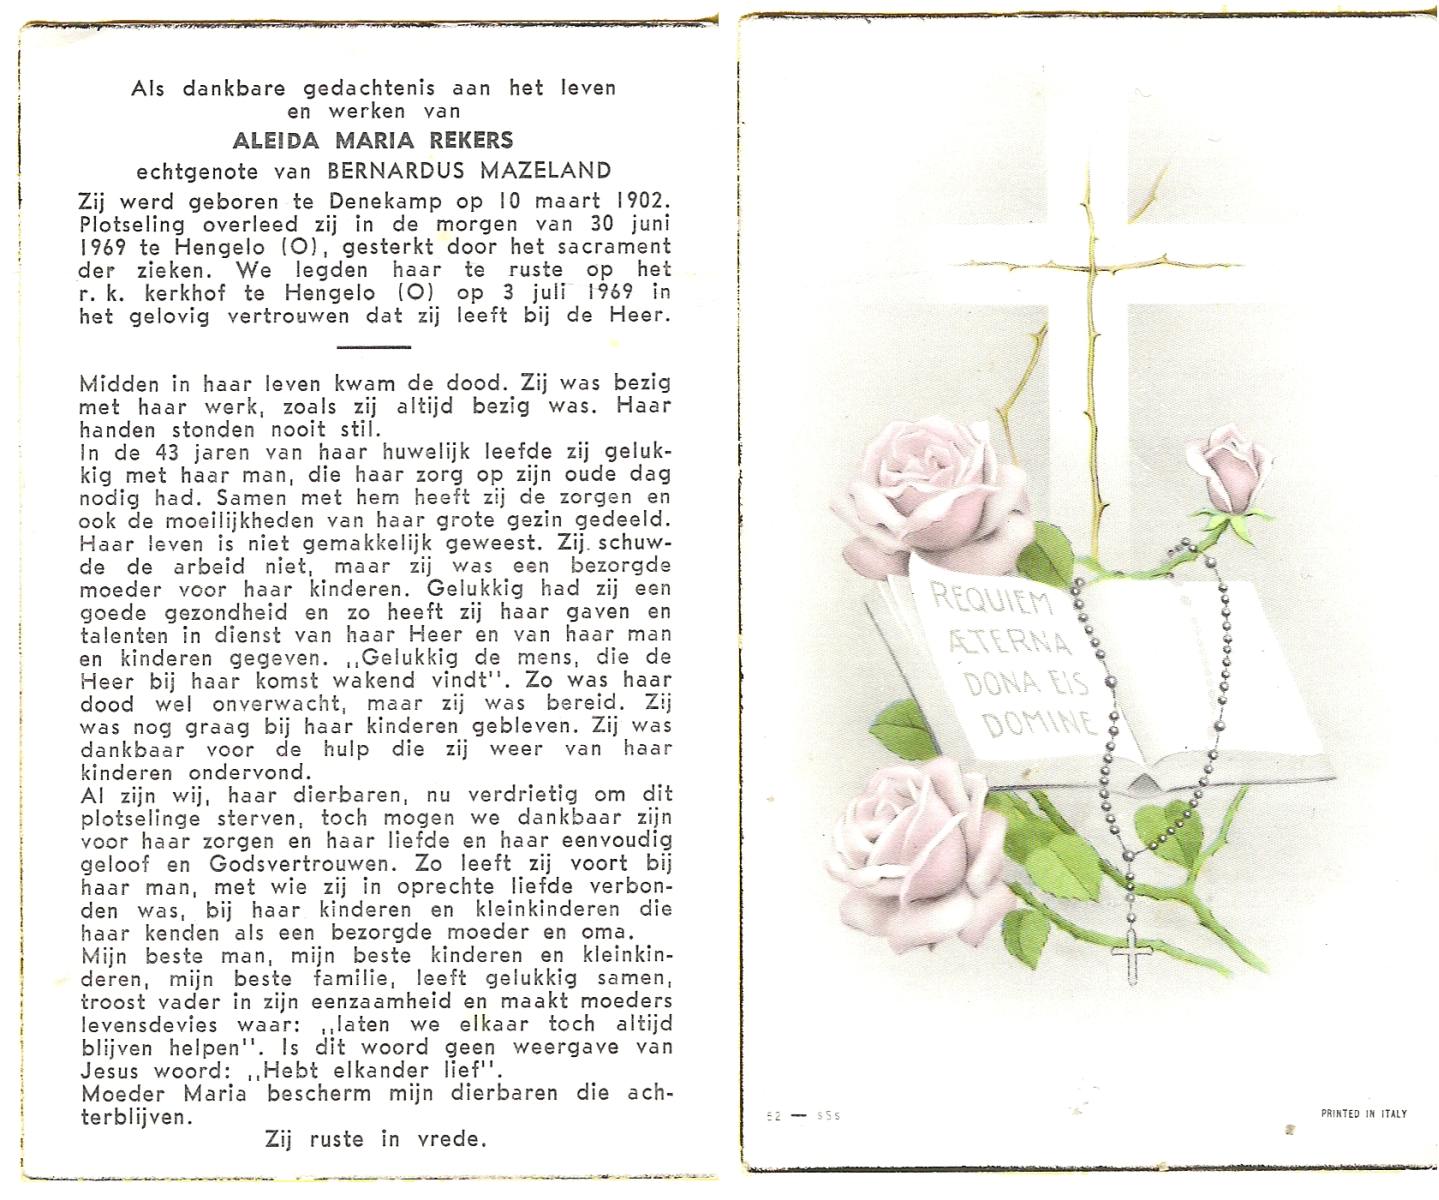 Als dankbare gedachtenis aan het leven
en werken van
ALEIDA MARIA REKERS
echtgenote van BERNARDUS MAZELAND
Zij werd geboren te Denekamp op 10 maart 1902.
Plotseling overleed zij in de morgen van 30 juni
1969 te Hengelo (O), gesterkt door het sacrament
der zieken. We legden haar te ruste op het
r. k. kerkhof te Hengelo (O) op 3 juli 1969 in
het gelovig vertrouwen dat zij leeft bij de Heer.
Midden in haar leven kwam de dood. Zij was bezig
met haar werk, zoals zij altijd bezig was. Haar
handen stonden nooit stil.
In de 43 jaren van haar huwelijk leefde zij geluk-
kig met haar man, die haar zorg op zijn oude dag
nodig had. Samen met hem heeft zij de zorgen en
ook de moeilijkheden van haar grote gezin gedeeld.
Haar leven is niet gemakkelijk geweest. Zij schuw-
de de arbeid niet, maar zij was een bezorgde
moeder voor haar kinderen. Gelukkig had zij een
goede gezondheid en zo heeft zij haar gaven en
talenten in dienst van haar Heer en van haar man
en kinderen gegeven. ,,Gelukkig de mens, die de
Heer bij haar komst wakend vindt". Zo was haar
dood wel onverwacht, maar zij was bereid. Zij
was nog graag bij haar kinderen gebleven. Zij was
dankbaar voor de hulp die zij weer van haar
kinderen ondervond.
Al zijn wij, haar dierbaren, nu verdrietig om dit
plotselinge sterven, toch mogen we dankbaar zijn
voor haar zorgen en haar liefde en haar eenvoudig
geloof en Godsvertrouwen. Zo leeft zij voort bij
haar man, met wie zij in oprechte liefde verbon-
den was, bij haar kinderen en kleinkinderen die
haar kenden als een bezorgde moeder en oma.
Mijn beste man, mijn beste kinderen en kleinkin-
deren, mijn beste familie, leeft gelukkig samen,
troost vader in zijn eenzaamheid en maakt moeders
levensdevies waar: ,,laten we elkaar toch altijd
blijven helpen". Is dit woord geen weergave van
Jesus woord: ,,Hebt elkander lief".
Moeder Maria bescherm mijn dierbaren die ach-
terblijven.
Zij ruste in vrede.
REQUIEM
ÆTERNA
DONA EIS
DOMINE
52 — s5s
PRINTED IN ITALY